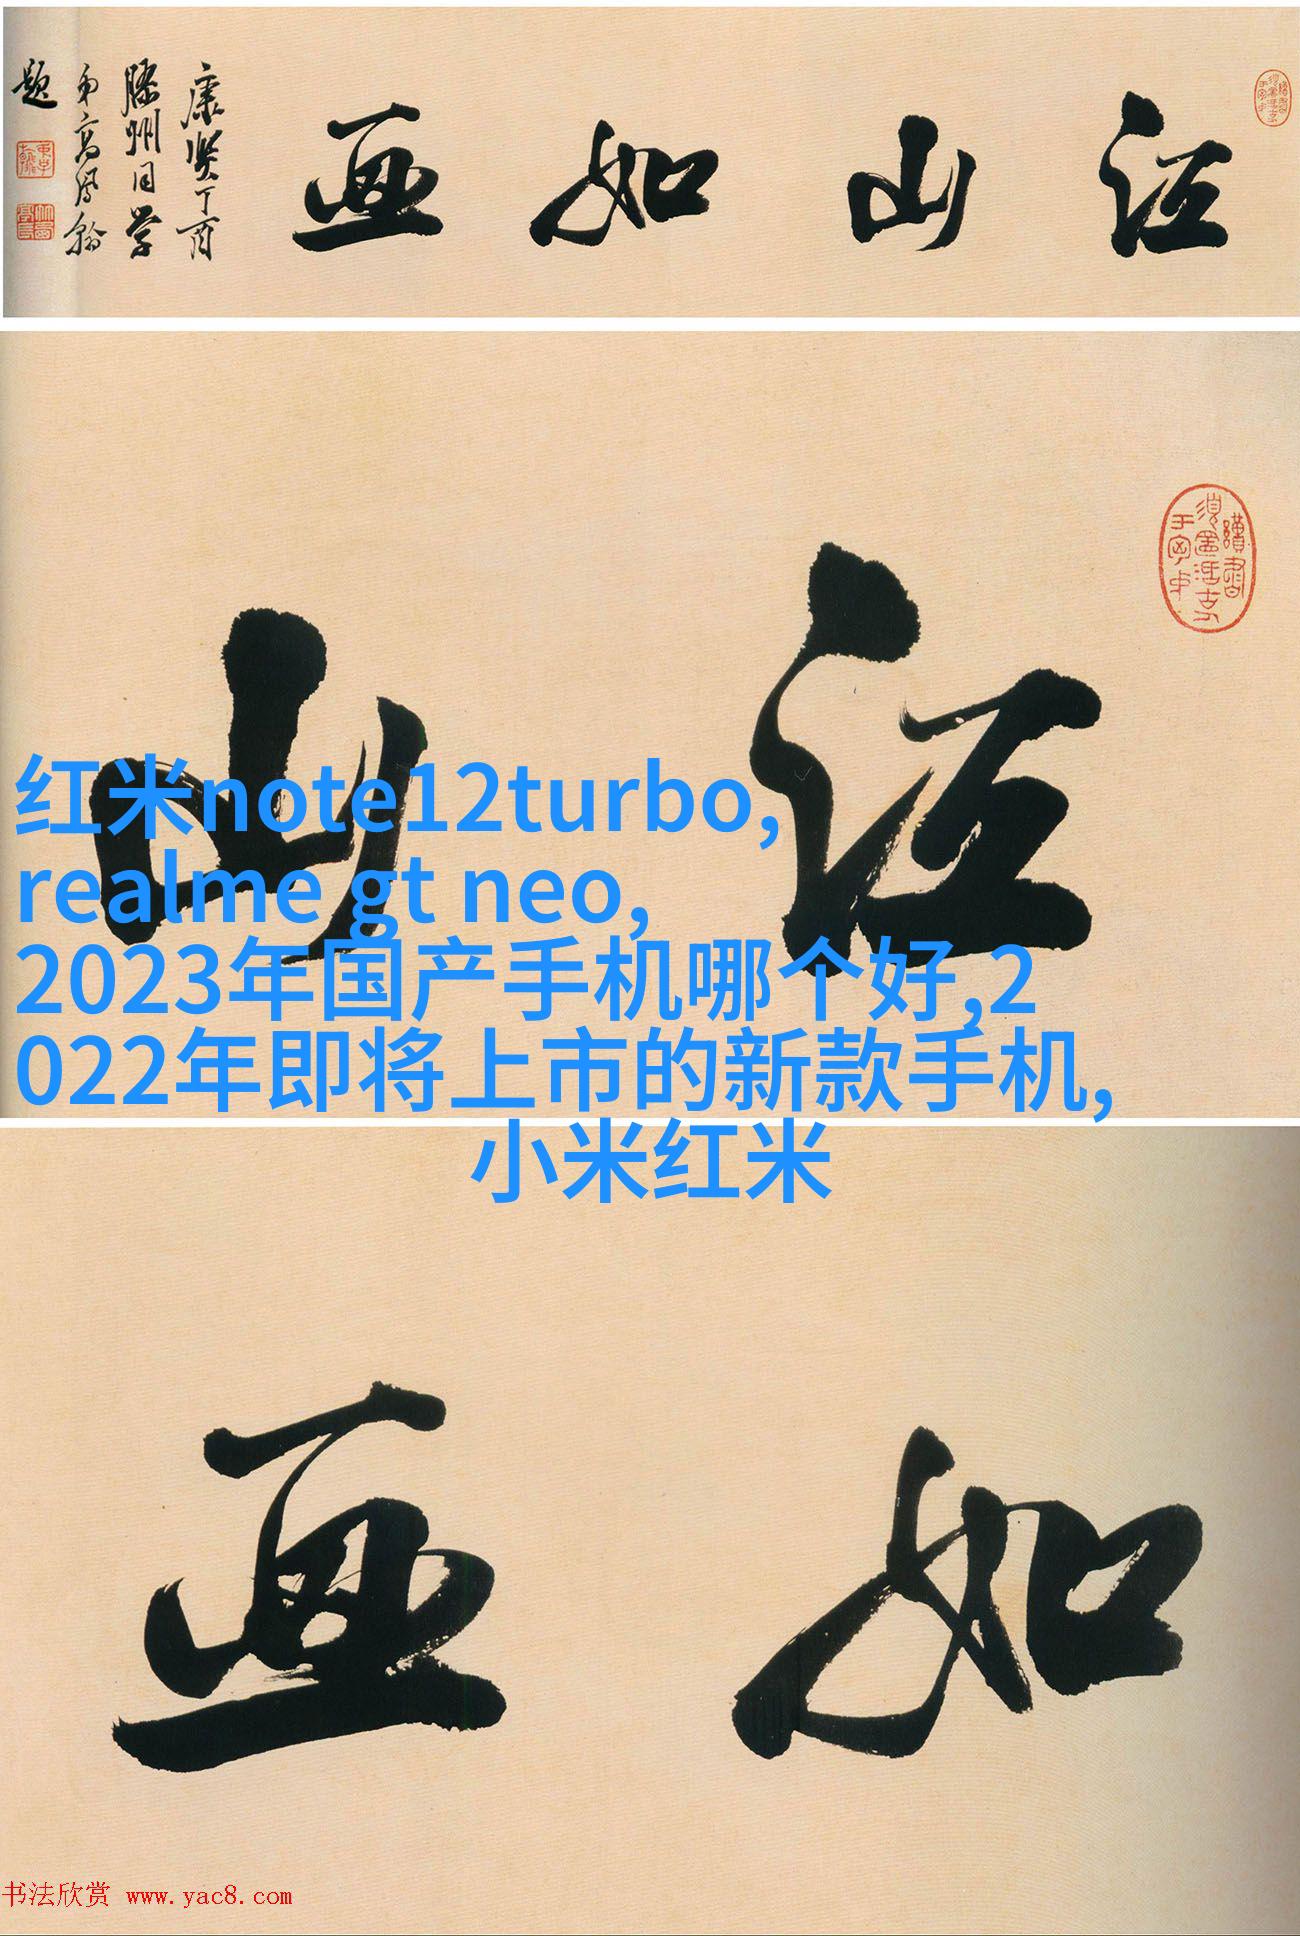 江山如画
康熙丁酉
滕州同学
弟高凤翰
题
江山
红米note12turbo,
realme gt neo,
2023年国产手机哪个好,2
022年即将上市的新款手机,
小米红米
如画
书法欣赏 www.yac8.com